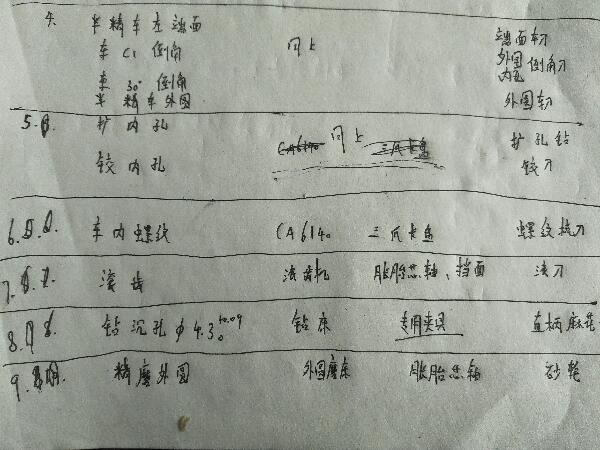 4. 半精车左端面 端面车刀
车C1倒角 同上 外圆
内孔 倒角刀
车30°倒角
半精车外圆 外圆车刀
5. 扩内孔 CA6140 同上 三爪卡盘 扩孔钻
铰内孔 铰刀
6. 车内螺纹 CA6140 三爪卡盘 螺纹梳刀
7. 滚齿 滚齿机 胀胎芯轴、挡面 滚刀
8. 钻沉孔φ4.3 +0.09 0 钻床 专用夹具 直柄麻花
9. 精磨外圆 外圆磨床 胀胎芯轴 砂轮